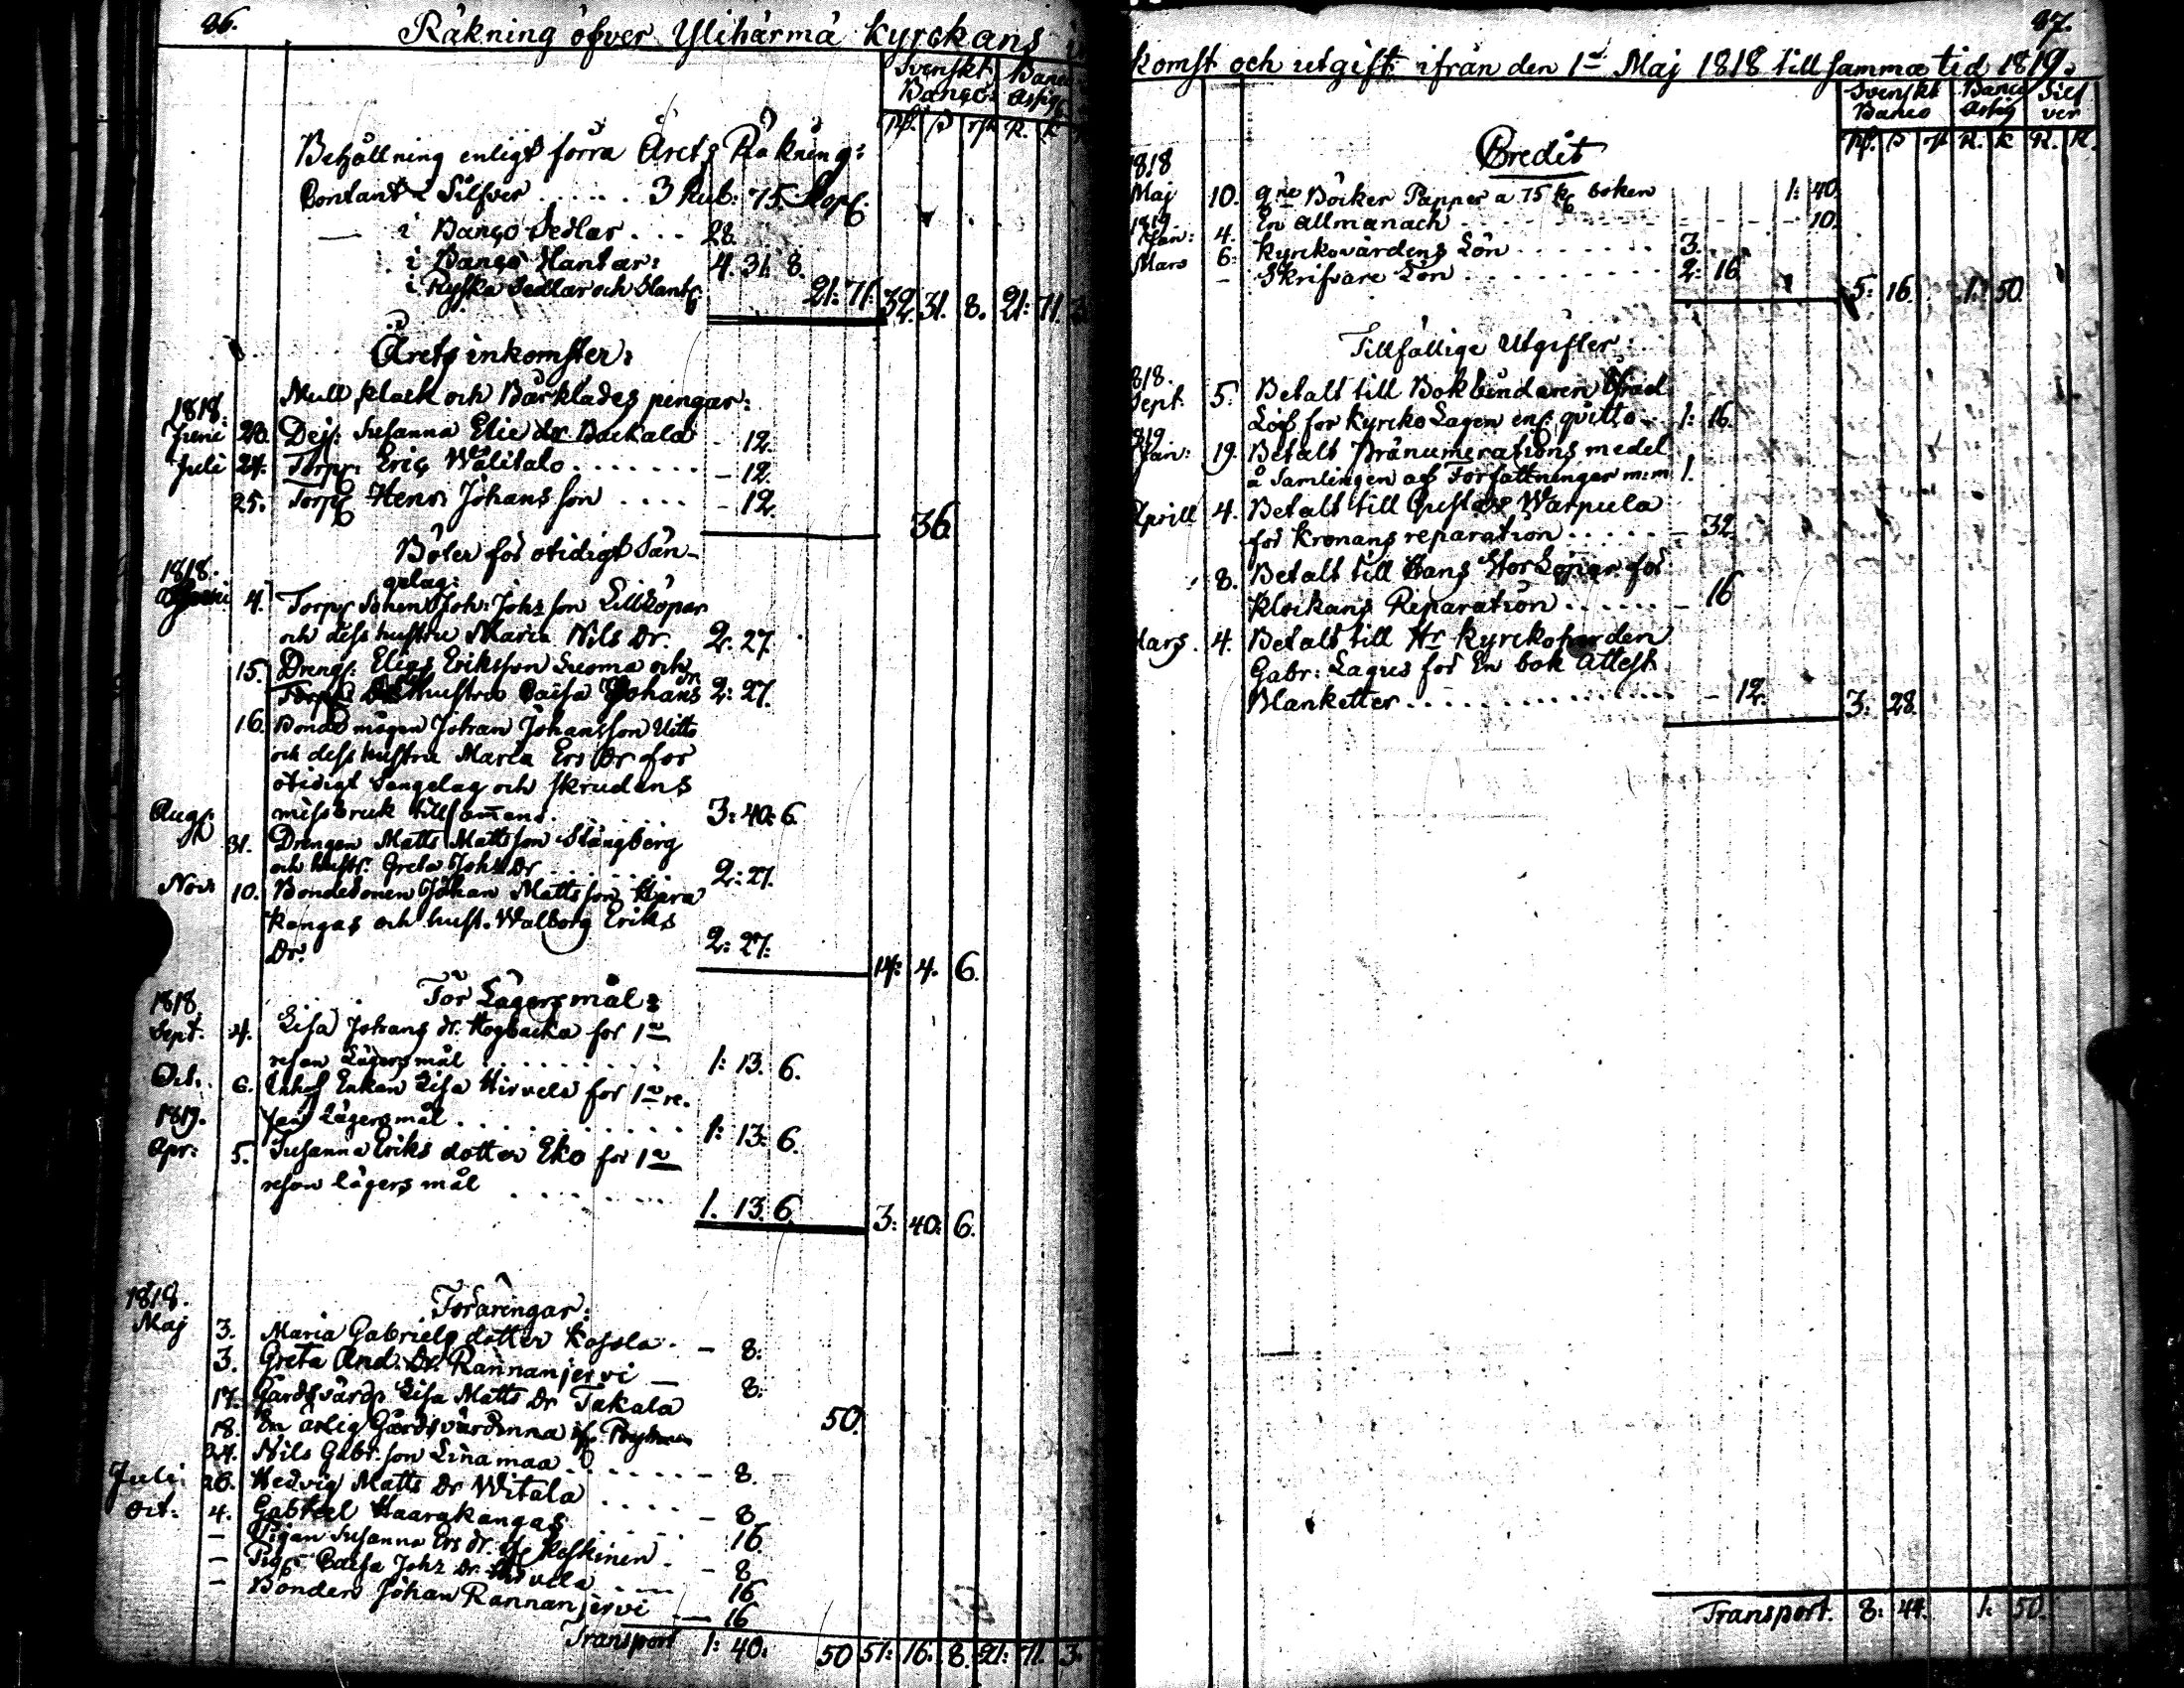 86.
Räkning öfver Ylihärmä kyrckans
Svenskt Banco
Banco Assign
Rd. s rst. R. K
Behållning enligt förra Årets Räkning:
Contant i Silfver ..... 3 Rub: 75. Kop.
— i Banco Sedlar ... 28.
i Banco Slantar: 4. 31. 8.
i Ryska Sedlar och Slant. 21: 71. 32. 31. 8. 21: 71. 3
Årets inkomster:
Mull klock och Bårklädes pengar:
1818.
Junii 20. Dej: Susanna Elie dr Backala - 12.
Juli 24. Torp. Eric Wälitalo ....... - 12.
25. Torp. Henr. Johansson .... - 12.
36.
Böter för otidigt Sän-
gelag:
1818.
4. Torp. Sonen Joh: Johs son Lillköpar
och dess hustru Maria Nils Dr. 2. 27.
15. Dreng. Elias Eriksson Luoma och
hustru Caisa Johans dr 2: 27.
16. Bonde mågen Johan Johansson Uitto
och dess hustru Maria Ers Dr for
otidigt Sängelag och skrudens
missbruk tillsamens. 3: 40: 6.
Aug. 31. Drengen Matts Mattsson Slangberg
och hustr. Greta Johs Dr ...... 2: 27.
Nov. 10. Bondesonen Johan Mattsson Hara
kangas och hust. Walborg Eriks
Dr. 2: 27:
14: 4. 6.
För Lägersmål:
1818
Sept. 4. Lisa Johans dr. Hogbacka for 1a
resan Lägersmål ........ 1: 13. 6.
Oct. 6. Inhys Enkan Lisa Hirvela for 1a re.
san Lägersmål .......... 1: 13: 6.
1819.
Apr: 5. Susanna Eriks dotter Eko for 1a
resan lägersmål ....... 1. 13. 6. 3: 40: 6.
Föräringar:
1818.
Maj 3. Maria Gabriels dotter Kassla. - 8.
3. Greta And. Dr. Rannanjervi — 8.
17. Gårdsvärd. Lisa Matts Dr Takala 50.
18. En ärlig Gårdsvärdinna
24. Nils Gabr. son Linamaa ...... - 8.
Juli 26. Hedvig Matts Dr Witala .... - 8.
Oct: 4. Gabriel Haarakangas ..... 16.
— Pigan Susanna Ers dr. Keskinen. - 8
— Pig. Caisa Johs Dr. Hirvela .... 16
— Bonden Johan Rannanjervi — 16
Transport 1: 40: 50 51: 16. 8. 21: 71. 3.
87.
komst och utgift ifrån den 1a Maj 1818 till samma tid 1819.
Svenskt Banco
Banco Assig
Silfver
Rd. s rst R. K R. K.
Credit
1818
Maj 10. 2ne Böcker Papper a 75 k boken 1: 40.
1819
Jan: 4. En allmanach - - - - - 10.
Mars 6. Kyrkovärdens Lön ...... 3.
- Skrifvare Lön ......... 2: 16. 5: 16. 1. 50.
Tillfällige Utgifter:
1818.
Sept. 5. Betalt till Bokbindaren
Löf for Kyrcko Lagen en. qvitto. 1: 16.
1819
Jan: 19. Betalt Pränumerations medel
å Samlingen af Författningar m:m 1.
Aprill 4. Betalt till Gustav Warpula
for Kronans reparation ..... - 32.
8. Betalt till Hans StorLöpar for
Klockans Reparation ...... - 16
Mars. 4. Betalt till Hr Kyrckoherden
Gabr: Lagus för En bok Attest
Blanketter ............... - 12. 3: 28.
Transport. 8: 44. 1: 50.